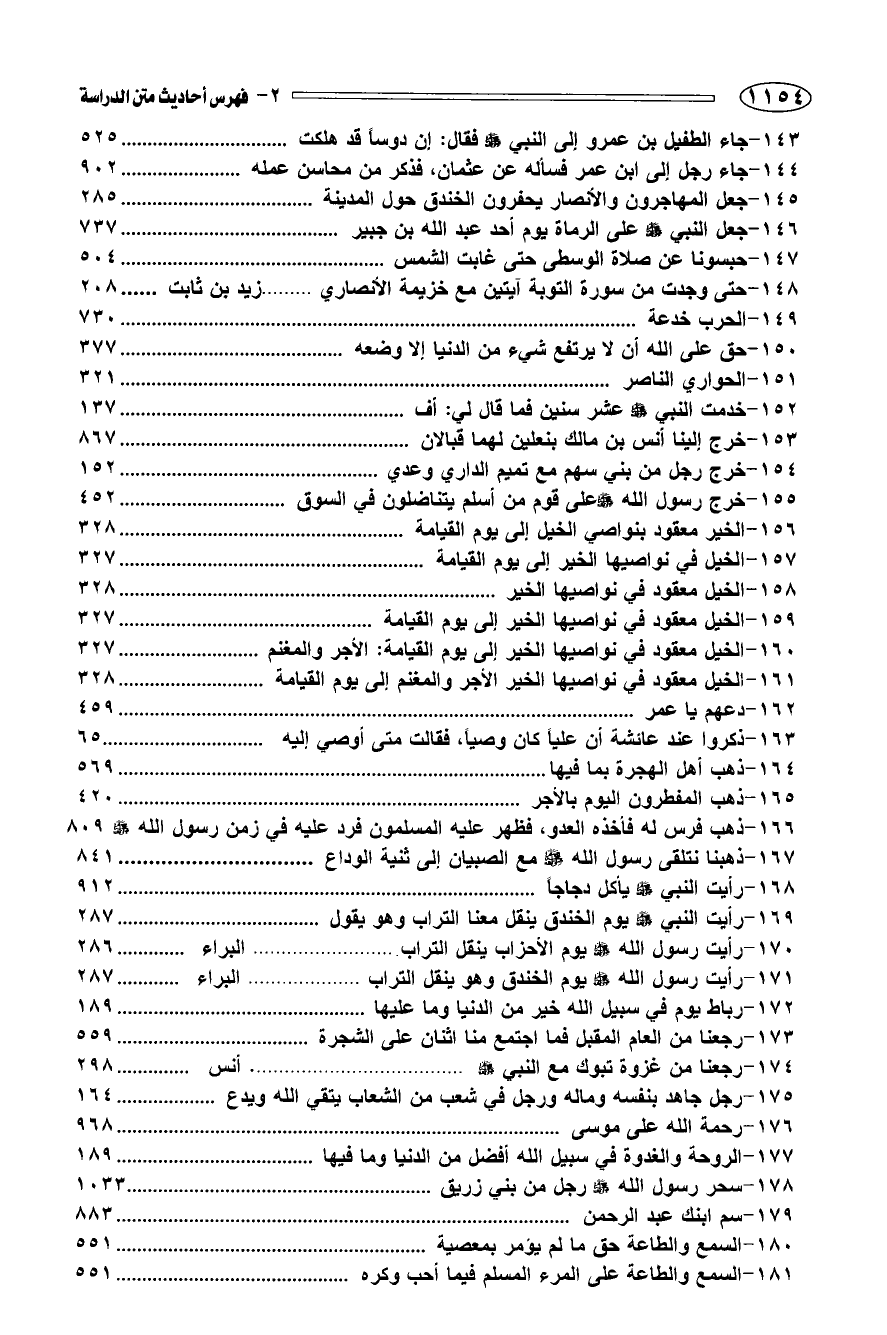 ١١٥٤ ٢- فهرس أحاديث متن الدراسة
١٤٣-جاء الطفيل بن عمرو إلى النبي ﷺ فقال: إن دوساً قد هلكت ................................ ٥٢٥
١٤٤-جاء رجل إلى ابن عمر فسأله عن عثمان، فذكر من محاسن عمله ....................... ٩٠٢
١٤٥-جعل المهاجرون والأنصار يحفرون الخندق حول المدينة ..................................... ٢٨٥
١٤٦-جعل النبي ﷺ على الرماة يوم أحد عبد الله بن جبير ......................................... ٧٣٧
١٤٧-حبسونا عن صلاة الوسطى حتى غابت الشمس .................................................. ٥٠٤
١٤٨-حتى وجدت من سورة التوبة آيتين مع خزيمة الأنصاري .........زيد بن ثابت ...... ٢٠٨
١٤٩-الحرب خدعة .................................................................................................. ٧٣٠
١٥٠-حق على الله أن لا يرتفع شيء من الدنيا إلا وضعه .......................................... ٣٧٧
١٥١-الحواري الناصر ............................................................................................. ٣٢١
١٥٢-خدمت النبي ﷺ عشر سنين فما قال لي: أف ...................................................... ١٣٧
١٥٣-خرج إلينا أنس بن مالك بنعلين لهما قبالان ....................................................... ٨٦٧
١٥٤-خرج رجل من بني سهم مع تميم الداري وعدي ................................................. ١٥٢
١٥٥-خرج رسول الله ﷺعلى قوم من أسلم يتناضلون في السوق ................................ ٤٥٢
١٥٦-الخير معقود بنواصي الخيل إلى يوم القيامة ...................................................... ٣٢٨
١٥٧-الخيل في نواصيها الخير إلى يوم القيامة .......................................................... ٣٢٧
١٥٨-الخيل معقود في نواصيها الخير ....................................................................... ٣٢٨
١٥٩-الخيل معقود في نواصيها الخير إلى يوم القيامة ................................................ ٣٢٧
١٦٠-الخيل معقود في نواصيها الخير إلى يوم القيامة: الأجر والمغنم ........................... ٣٢٧
١٦١-الخيل معقود في نواصيها الخير الأجر والمغنم إلى يوم القيامة ............................ ٣٢٨
١٦٢-دعهم يا عمر ................................................................................................... ٤٥٩
١٦٣-ذكروا عند عائشة أن علياً كان وصياً، فقالت متى أوصي إليه ............................... ٦٥
١٦٤-ذهب أهل الهجرة بما فيها.................................................................................. ٥٦٩
١٦٥-ذهب المفطرون اليوم بالأجر ............................................................................. ٤٢٠
١٦٦-ذهب فرس له فأخذه العدو، فظهر عليه المسلمون فرد عليه في زمن رسول الله ﷺ ٨٠٩
١٦٧-ذهبنا نتلقى رسول الله ﷺ مع الصبيان إلى ثنية الوداع ................................ ٨٤١
١٦٨-رأيت النبي ﷺ يأكل دجاجاً ................................................................................ ٩١٢
١٦٩-رأيت النبي ﷺ يوم الخندق ينقل معنا التراب وهو يقول ....................................... ٢٨٧
١٧٠-رأيت رسول الله ﷺ يوم الأحزاب ينقل التراب............................ البراء ............. ٢٨٦
١٧١-رأيت رسول الله ﷺ يوم الخندق وهو ينقل التراب ..................... البراء ............ ٢٨٧
١٧٢-رباط يوم في سبيل الله خير من الدنيا وما عليها ................................................ ١٨٩
١٧٣-رجعنا من العام المقبل فما اجتمع منا اثنان على الشجرة ..................................... ٥٥٩
١٧٤-رجعنا من غزوة تبوك مع النبي ﷺ ........................................ أنس .............. ٢٩٨
١٧٥-رجل جاهد بنفسه وماله ورجل في شعب من الشعاب يتقي الله ويدع ................... ١٦٤
١٧٦-رحمة الله على موسى ...................................................................................... ٩٦٨
١٧٧-الروحة والغدوة في سبيل الله أفضل من الدنيا وما فيها ...................................... ١٨٩
١٧٨-سحر رسول الله ﷺ رجل من بني زريق ............................................................ ١٠٣٣
١٧٩-سم ابنك عبد الرحمن ........................................................................................ ٨٨٣
١٨٠-السمع والطاعة حق ما لم يؤمر بمعصية ............................................................ ٥٥١
١٨١-السمع والطاعة على المرء المسلم فيما أحب وكره ............................................. ٥٥١